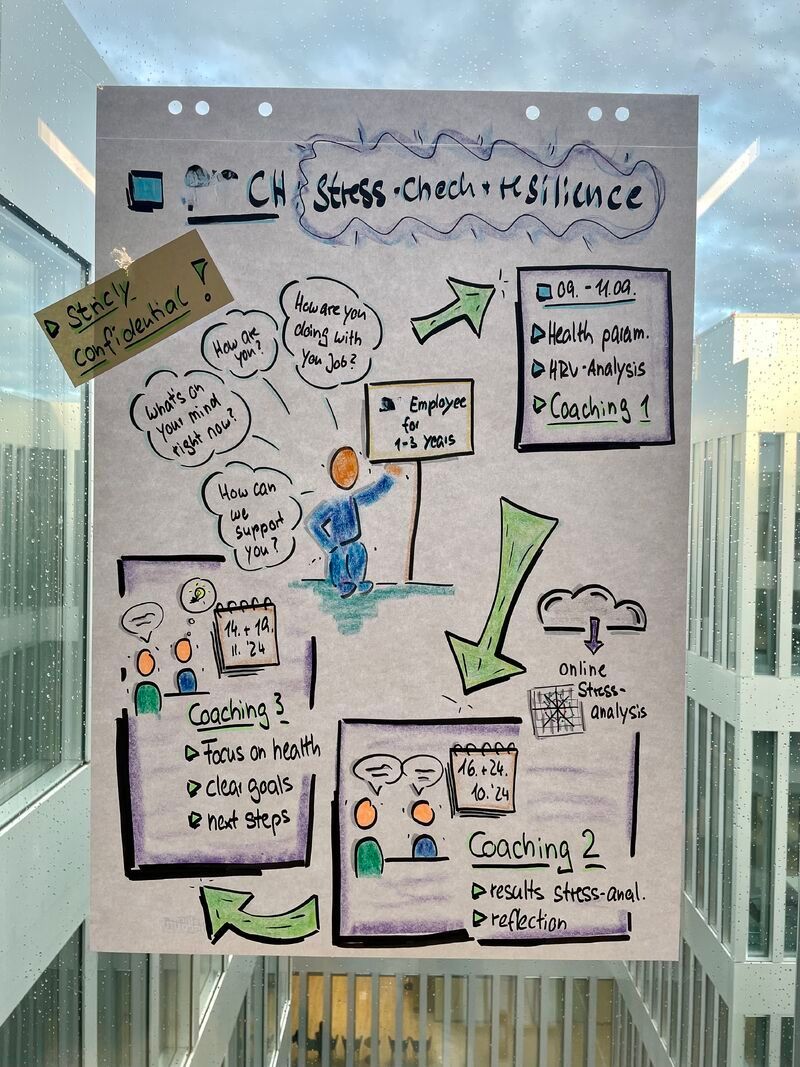 CH Stress-Check + resilience
Stricly
confidential!
How are you
doing with
you Job?
How are
you?
What's on
your mind
right now?
How can
we
support
you?
Employee
for
1-3 years
09. - 11.09.
Health param.
HRV-Analysis
Coaching 1
online
Stress-
analysis
16. + 24.
10. '24
Coaching 2
results stress-anal.
reflection
14. + 19.
11. '24
Coaching 3
Focus on health
clear goals
next steps